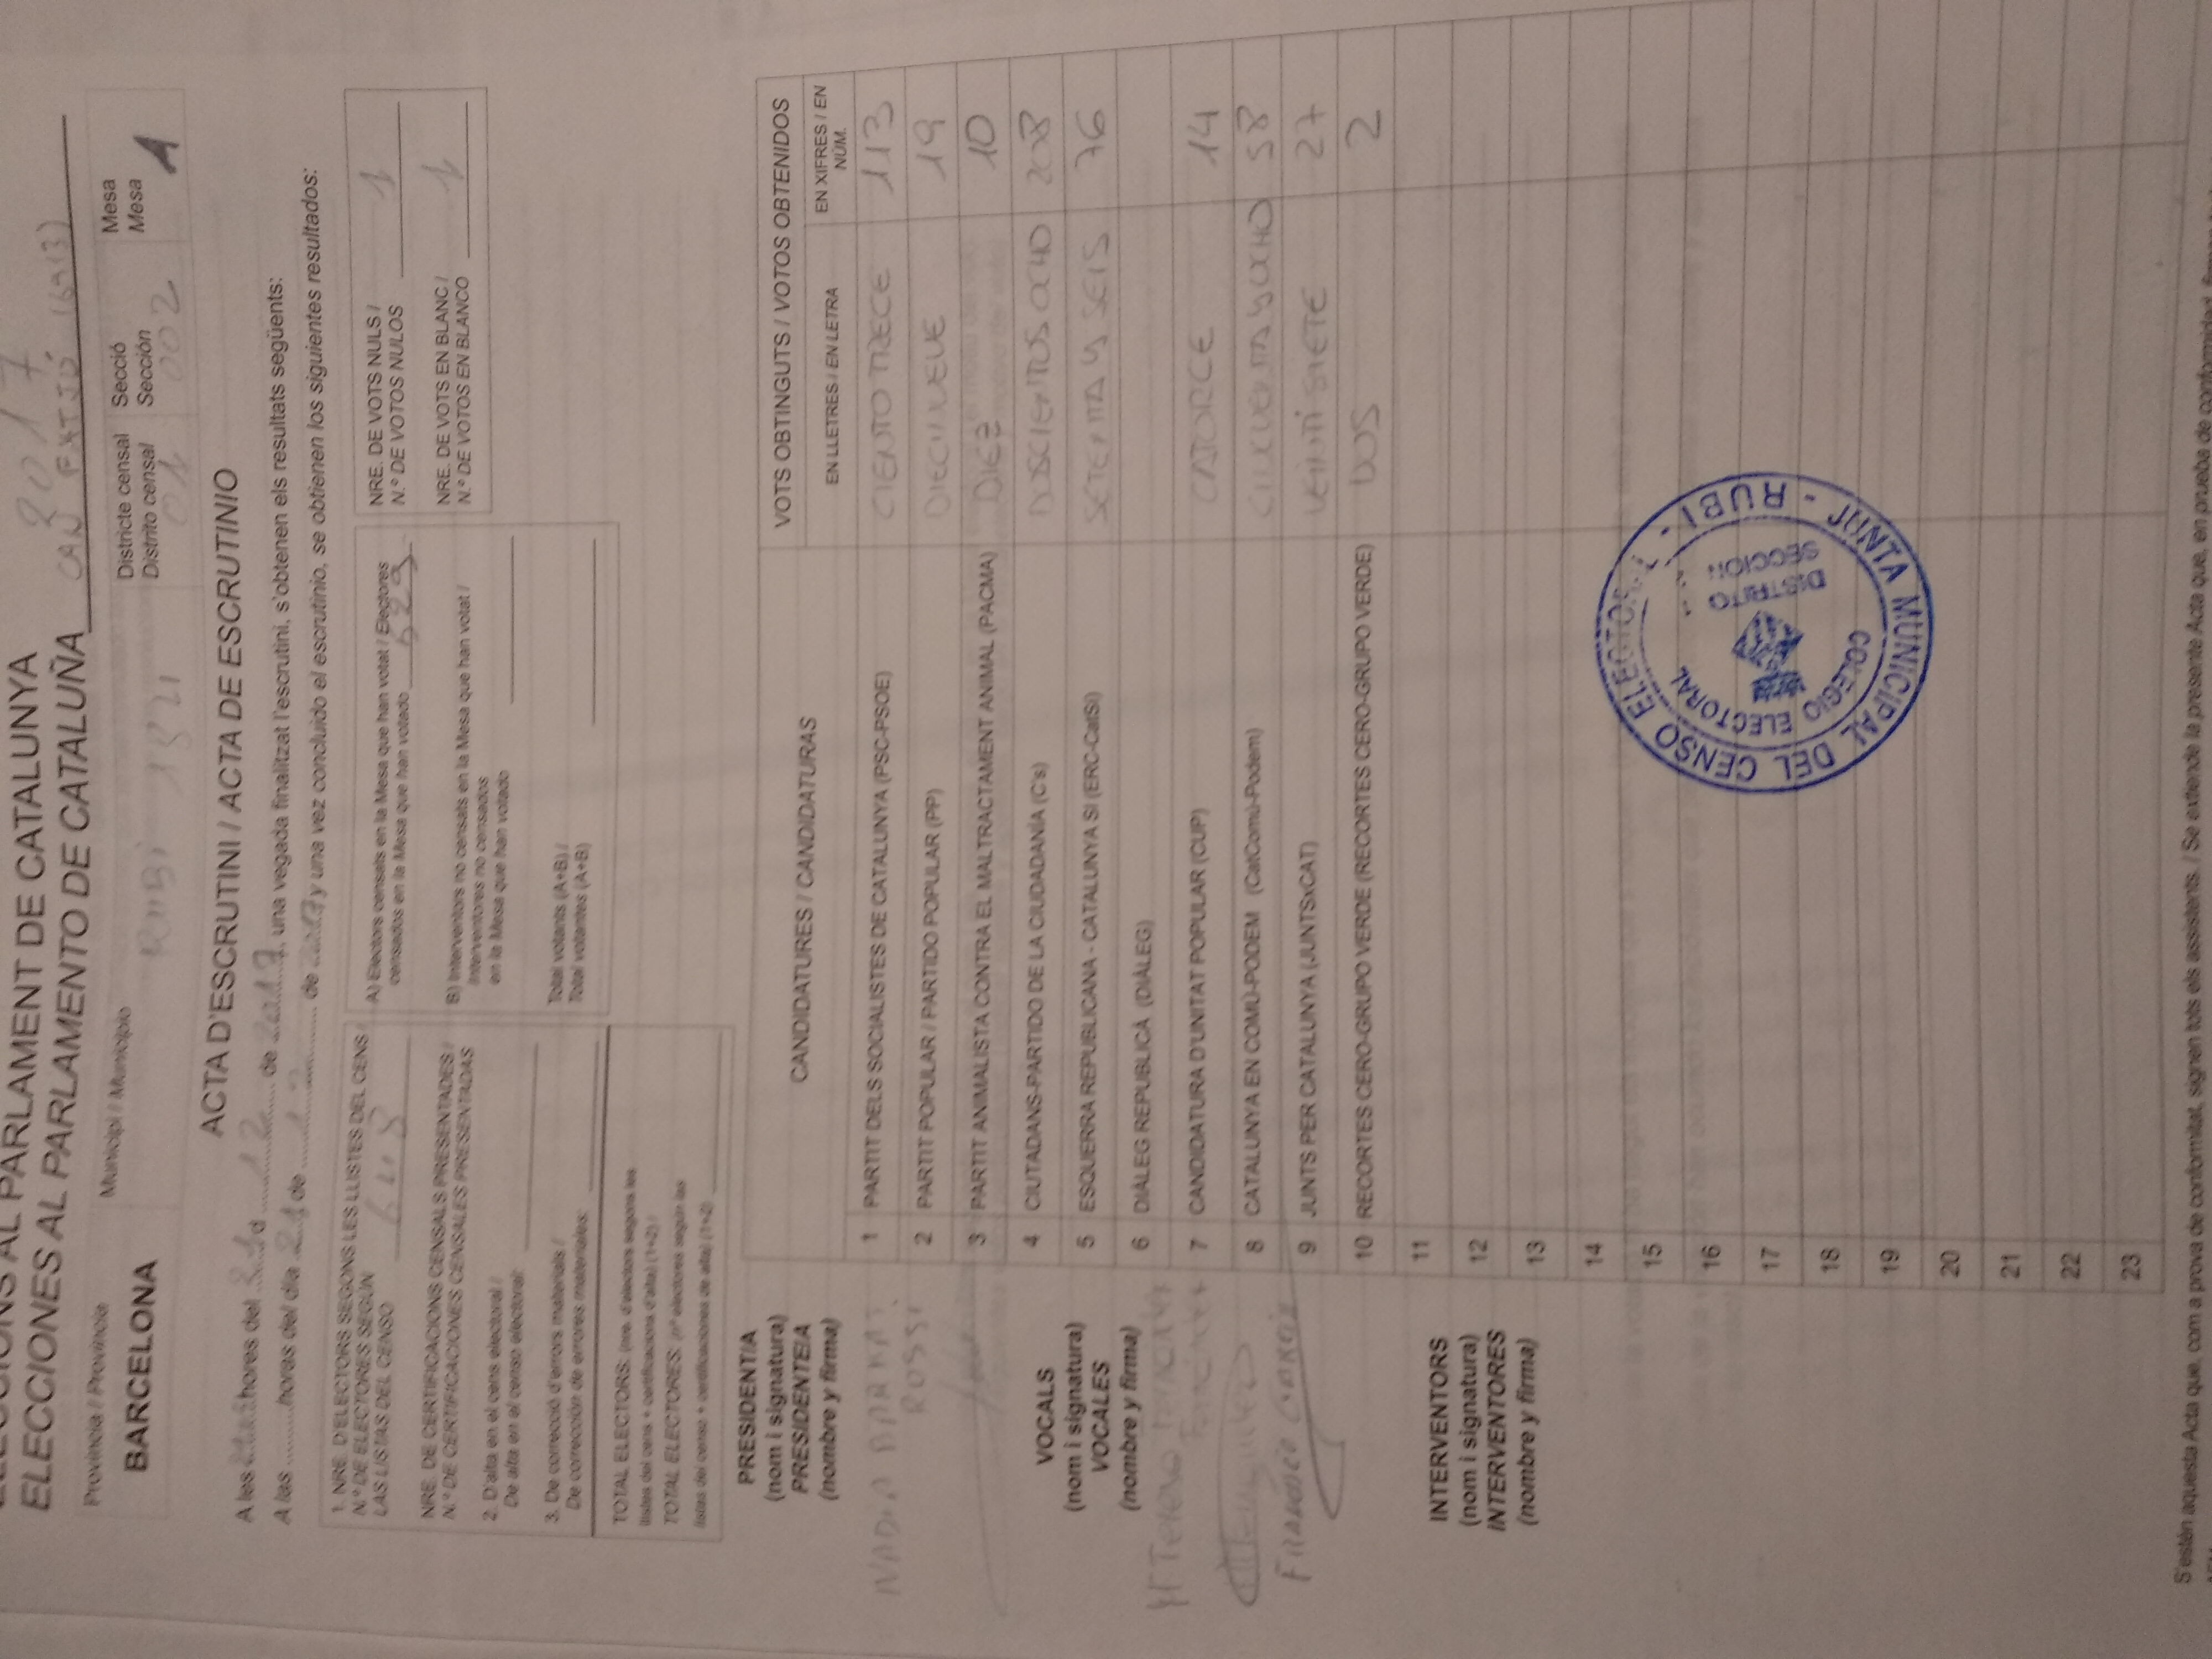 ELECCIONS AL PARLAMENT DE CATALUNYA
2017
ELECCIONES AL PARLAMENTO DE CATALUÑA
CAN FATJÓ (6913)
Provincia / Provincia
BARCELONA
Municipi / Municipio
RUBÍ 184
Districte censal
Distrito censal
01
Secció
Sección
002
Mesa
Mesa
A
ACTA D'ESCRUTINI / ACTA DE ESCRUTINIO
A les hores del 21 d 12 de 2017, una vegada finalitzat l'escrutini, s'obtenen els resultats següents:
A las .........horas del día 21 de 12 de 2017 y una vez concluido el escrutinio, se obtienen los siguientes resultados:
1. NRE. D'ELECTORS SEGONS LES LLISTES DEL CENS /
N.º DE ELECTORES SEGÚN
LAS LISTAS DEL CENSO
NRE. DE CERTIFICACIONS CENSALS PRESENTADES /
N.º DE CERTIFICACIONES CENSALES PRESENTADAS
2. D'alta en el cens electoral /
De alta en el censo electoral:
3. De correcció d'errors materials /
De corrección de errores materiales:
TOTAL ELECTORS: (nre. d'electors segons les
llistes del cens + certificacions d'alta) (1+2) /
TOTAL ELECTORES: (nº electores según las
listas del censo + certificaciones de alta) (1+2)
A) Electors censats en la Mesa que han votat / Electores
censados en la Mesa que han votado 529
B) Interventors no censats en la Mesa que han votat /
Interventores no censados
en la Mesa que han votado
Total votants (A+B) /
Total votantes (A+B)
NRE. DE VOTS NULS /
N.º DE VOTOS NULOS 1
NRE. DE VOTS EN BLANC /
N.º DE VOTOS EN BLANCO 1
PRESIDENT/A
(nom i signatura)
PRESIDENTE/A
(nombre y firma)
NADIA BARKAT
ROSSI
VOCALS
(nom i signatura)
VOCALES
(nombre y firma)
Mª Teresa
FRANCISCO GARCÍA
INTERVENTORS
(nom i signatura)
INTERVENTORES
(nombre y firma)
CANDIDATURES / CANDIDATURAS
VOTS OBTINGUTS / VOTOS OBTENIDOS
EN LLETRES / EN LETRA
EN XIFRES / EN
NÚM.
1 PARTIT DELS SOCIALISTES DE CATALUNYA (PSC-PSOE) CIENTO TRECE 113
2 PARTIT POPULAR / PARTIDO POPULAR (PP) DIECINUEVE 19
3 PARTIT ANIMALISTA CONTRA EL MALTRACTAMENT ANIMAL (PACMA) DIEZ 10
4 CIUTADANS-PARTIDO DE LA CIUDADANÍA (C's) DOSCIENTOS OCHO 208
5 ESQUERRA REPUBLICANA - CATALUNYA SI (ERC-CatSí) SETENTA Y SEIS 76
6 DIÀLEG REPUBLICÀ (DIÀLEG)
7 CANDIDATURA D'UNITAT POPULAR (CUP) CATORCE 14
8 CATALUNYA EN COMÚ-PODEM (CatComú-Podem) CINCUENTA Y OCHO 58
9 JUNTS PER CATALUNYA (JUNTSxCAT) VEINTISIETE 27
10 RECORTES CERO-GRUPO VERDE (RECORTES CERO-GRUPO VERDE) DOS 2
11
12
13
14
15
16
17
18
19
20
21
22
23
JUNTA MUNICIPAL DEL CENSO ELECTORAL - RUBI -
COLEGIO ELECTORAL
DISTRITO 1
SECCION 2
S'estén aquesta Acta que, com a prova de conformitat, signen tots els assistents. / Se extiende la presente Acta que, en prueba de conformidad, firman